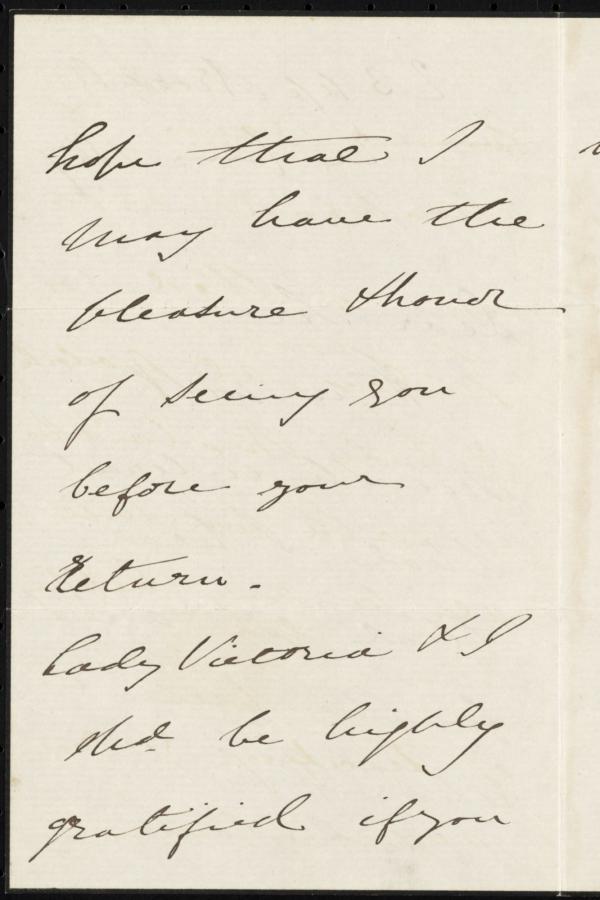 hope that I
may have the
pleasure & honor
of seeing you
before your
return.
Lady Victoria & I
shd. be highly
gratified if you